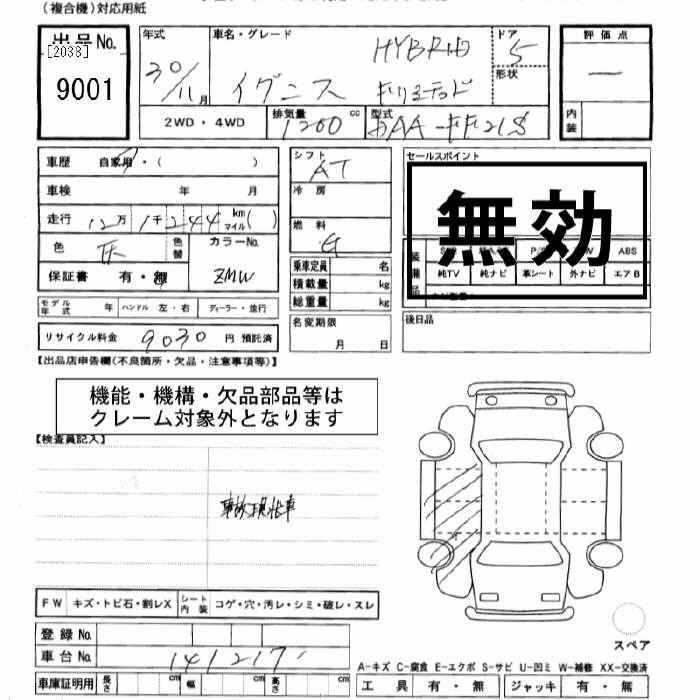 (複合機)対応用紙
出品No.
[2038]
9001
年式 30/11月
車名・グレード HYBRID
イグニス
ドア 5
形状
2WD・4WD
排気量 1200 cc
型式 DAA-FF21S
評価点
ー
内装
車歴 自家用・( )
車検 年 月
走行 12万1千244 km マイル( )
色
色替
カラーNo.
ZMW
保証書 有・無
モデル年式 年 ハンドル 左・右 ディーラー・並行
リサイクル料金 9030 円 預託済
シフト AT
冷房
燃料 G
乗車定員 名
積載量 kg
総重量 kg
名変期限
月 日
セールスポイント
無効
装備品
ABS
純TV 純ナビ 革シート 外ナビ エアB
後日品
【出品店申告欄(不良箇所・欠品・注意事項等)】
機能・機構・欠品部品等は
クレーム対象外となります
【検査員記入】
事故現状車
FW キズ・トビ石・割レX シート内装 コゲ・穴・汚レ・シミ・破レ・スレ
登録No.
車台No. 141217
車庫証明用 長さ cm 幅 cm 高さ cm
スペア
A-キズ C-腐食 E-エクボ S-サビ U-凹ミ W-補修 XX-交換済
工具 有・無 ジャッキ 有・無